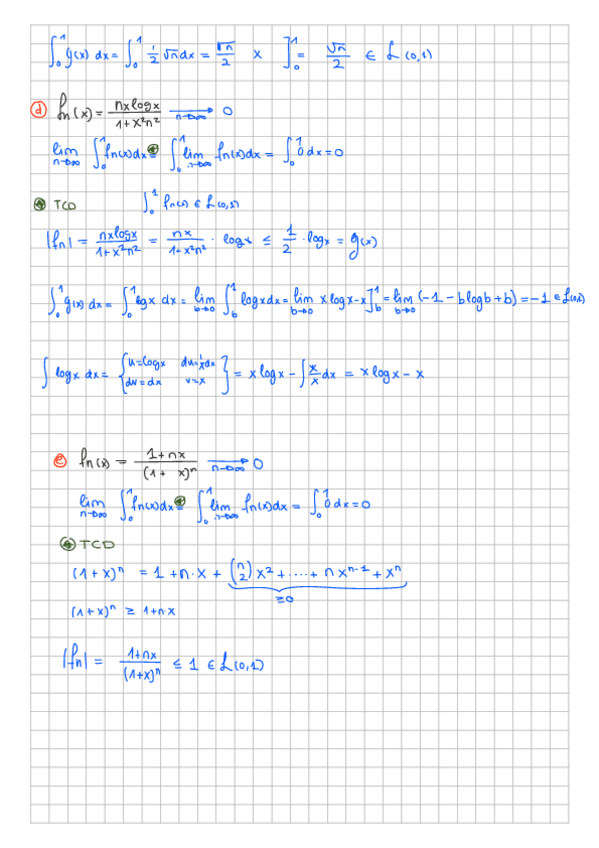 ∫₀¹ g(x) dx = ∫₀¹ 1/2 √n dx = √n/2 x ]₀¹ = √n/2 ∈ L(0,1)
(d) fn(x) = nx log x / 1+x²n² →(n→∞) 0
lim(n→∞) ∫₀¹ fn(x)dx = ∫₀¹ lim(n→∞) fn(x)dx = ∫₀¹ 0 dx = 0
TCD ∫₀¹ fn(x) ∈ L(0,1)
|fn| = nx log x / 1+x²n² = nx / 1+x²n² · log x ≤ 1/2 · log x = g(x)
∫₀¹ g(x) dx = ∫₀¹ log x dx = lim(b→0) ∫_b¹ log x dx = lim(b→0) x log x - x ]_b¹ = lim(b→0) (-1 - b log b + b) = -1 ∈ L(0,1)
∫ log x dx = { u = log x du = 1/x dx dv = dx v = x } = x log x - ∫ x/x dx = x log x - x
(e) fn(x) = 1+nx / (1+ x)ⁿ →(n→∞) 0
lim(n→∞) ∫₀¹ fn(x)dx = ∫₀¹ lim(n→∞) fn(x)dx = ∫₀¹ 0 dx = 0
TCD
(1+x)ⁿ = 1 + n·x + (n 2) x² + ..... + n xⁿ⁻¹ + xⁿ
≥0
(1+x)ⁿ ≥ 1+n·x
|fn| = 1+nx / (1+x)ⁿ ≤ 1 ∈ L(0,1)